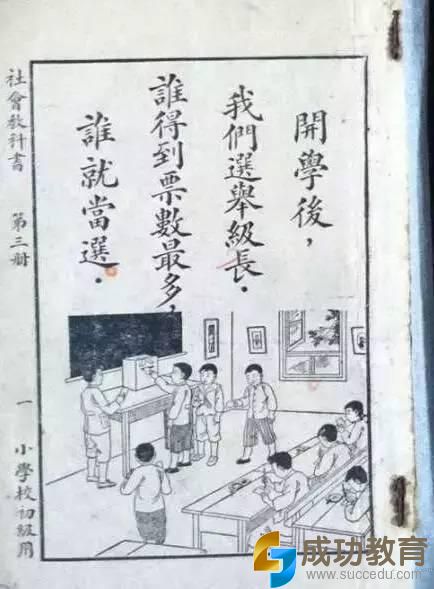 開學後，
我們選舉級長．
誰得到票數最多，
誰就當選．
社會教科書 第三册 一 小學校初級用
成功教育
www.succedu.com